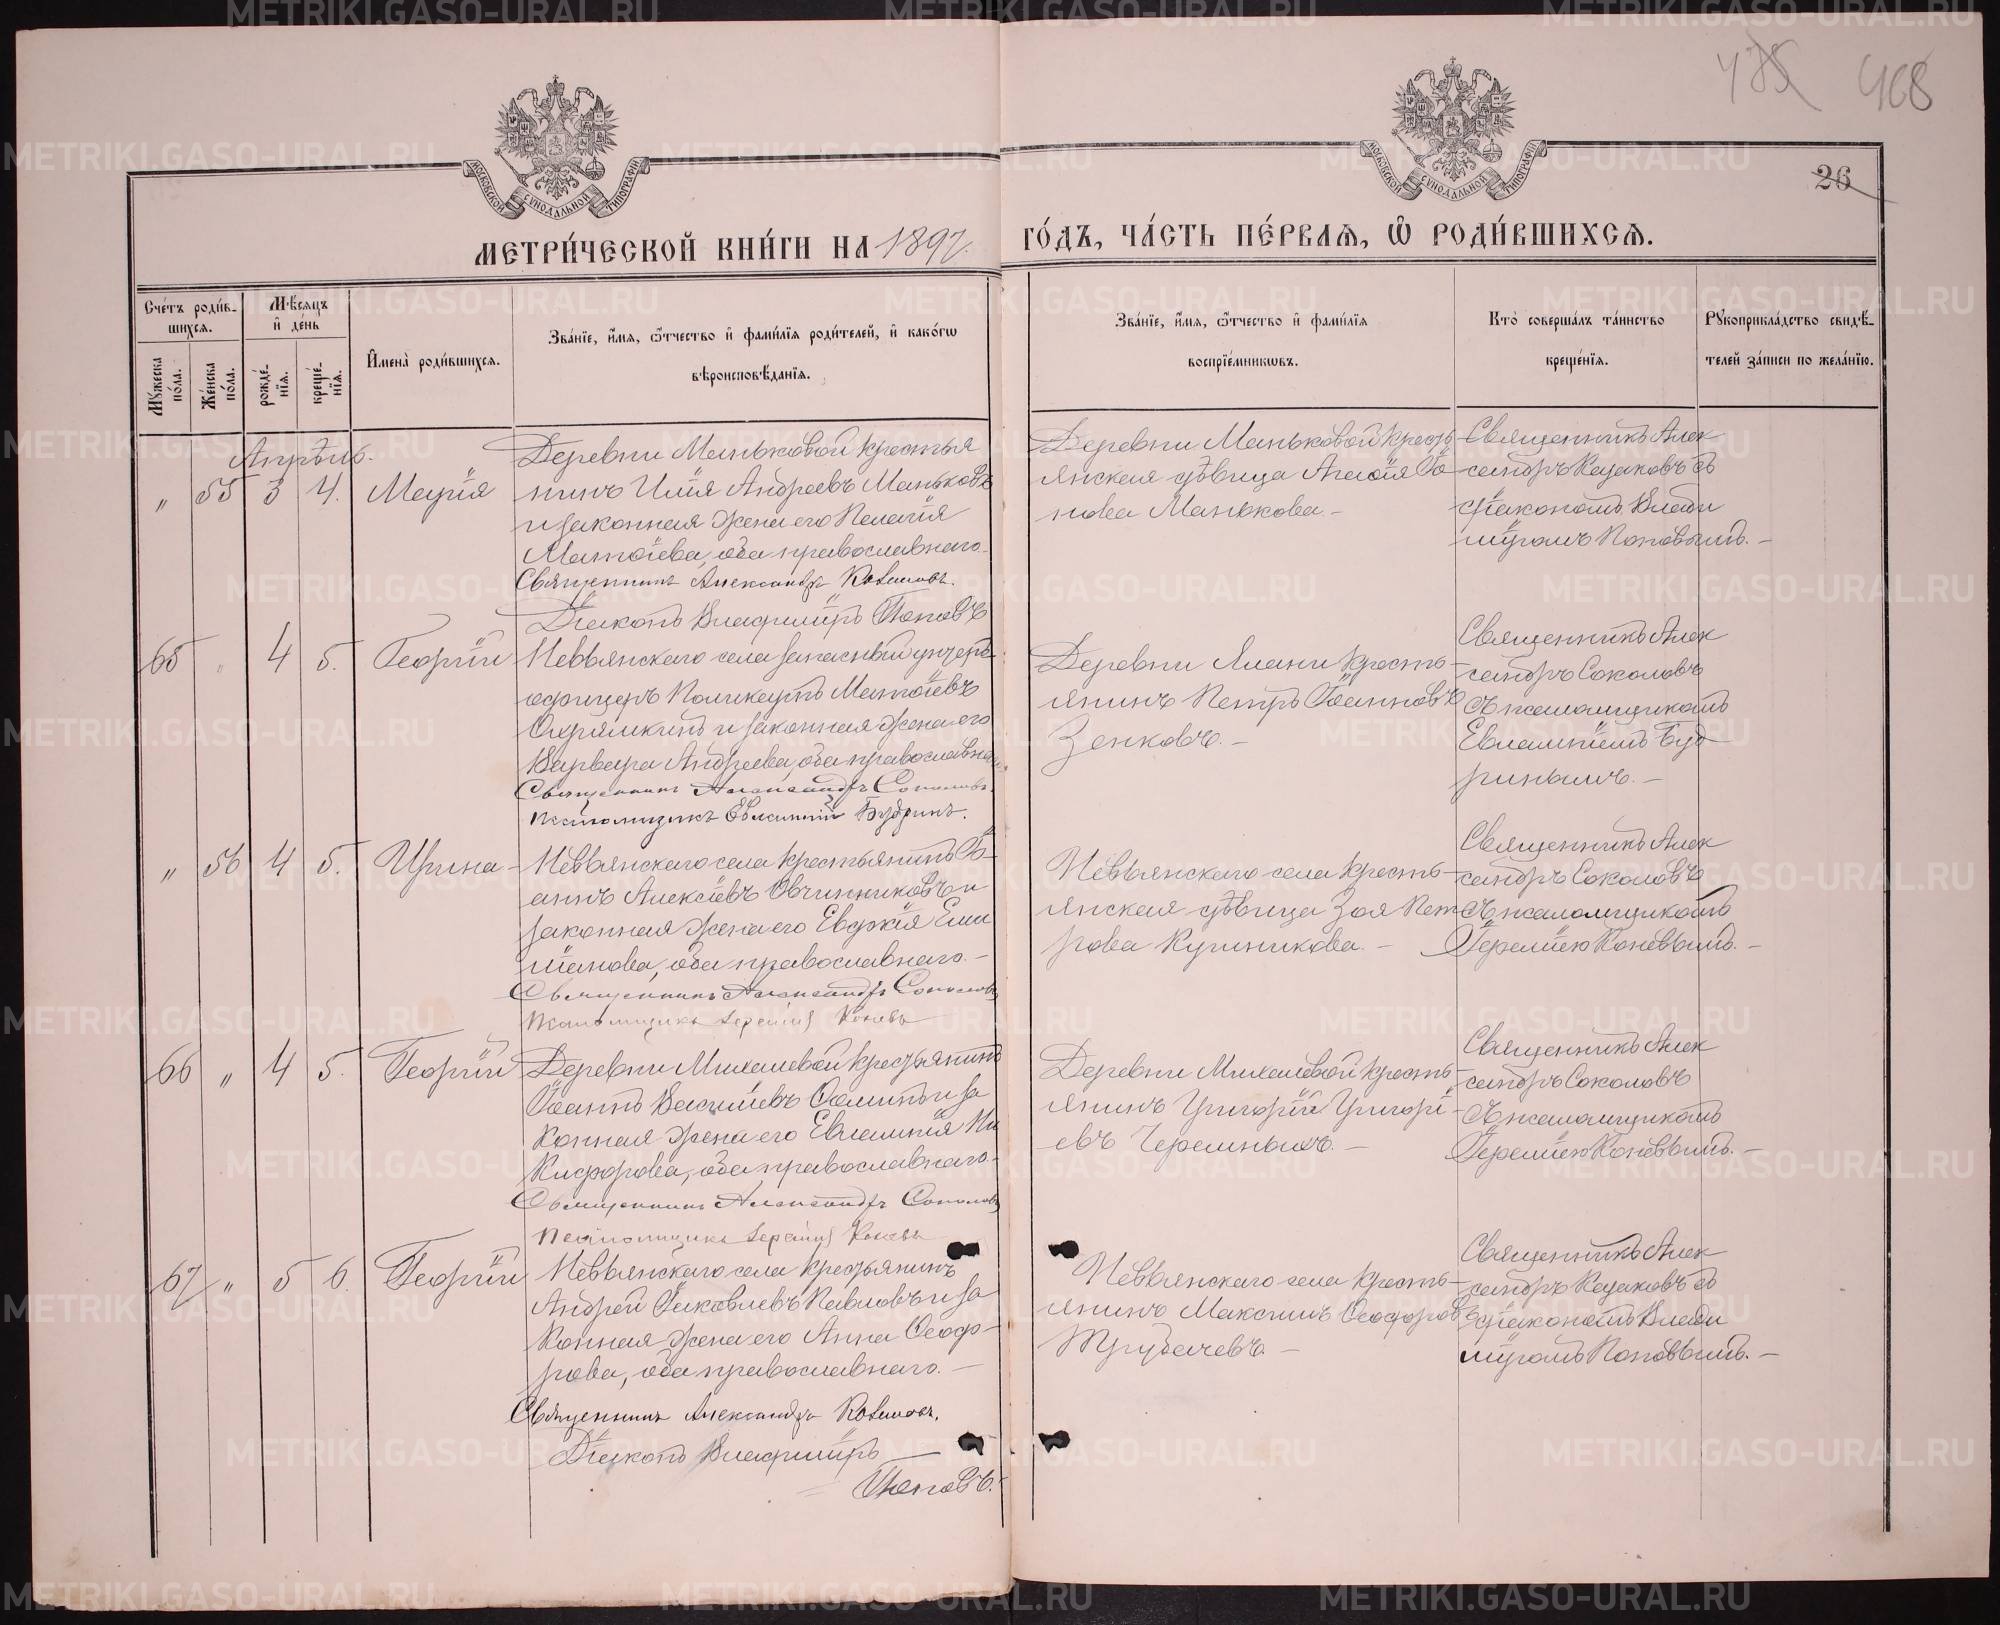 475 468
26
МОСКОВСКОЙ СУНОДАЛЬНОЙ ТИПОГРАФІИ
МОСКОВСКОЙ СУНОДАЛЬНОЙ ТИПОГРАФІИ
МЕТРИ́ЧЕСКОЙ КНИ́ГИ НА 1897. ГО́ДЪ, ЧА́СТЬ ПЕ́РВАѦ, Ѽ РОДИ́ВШИХСѦ.
Сче́тъ роди́в-
шихсѧ.
Мꙋжеска по́ла.
Же́нска по́ла.
М́ѣсѧцъ
и҆ де́нь
рожде́-
нїѧ.
креще́-
нїѧ.
И҆мена̀ роди́вшихсѧ.
Зва́нїе, и҆́мѧ, ѻ҆́тчество и҆ фами́лїѧ роди́телей, и҆ како́гѡ
вѣроисповѣ́данїѧ.
Зва́нїе, и҆́мѧ, ѻ҆́тчество и҆ фами́лїѧ
воспрїе́мникѡвъ.
Кто̀ соверша́лъ та́инство
креще́нїѧ.
Рꙋкоприкла́дство свидѣ́-
телей за́писи по жела́нїю.
Апрѣль.
„ 55 3 4. Марія
Деревни Маньковой крестья
нинъ Илія Андреевъ Маньковъ
и законная жена его Пелагія
Матѳіева, оба православнаго.
Священникъ Александръ Казаковъ.
Діаконъ Владиміръ Поповъ
Деревни Маньковой кресть
янская дѣвица Агаѳія Іо-
нова Манькова. –
Священникъ Алек
сандръ Казаковъ съ
діакономъ Влади
міромъ Поповымъ. –
65 „ 4 5. Георгій
Невьянскаго села запасный унтеръ-
офицеръ Поликарпъ Матѳіевъ
и законная жена его
Варвара Андреева, оба православнаго
Священникъ Александръ Соколовъ.
Псаломщикъ Евлампій Будринъ.
Деревни Ялани кресть-
янинъ Петръ Іоанновъ
Зенковъ. –
Священникъ Алек
сандръ Соколовъ
съ псаломщикомъ
Евлампіемъ Буд
ринымъ. –
„ 56 4 5. Ирина –
Невьянскаго села крестьянинъ Іо-
аннъ Алексіевъ Овчинниковъ и
законная жена его Евдокія Еми
ліанова, оба православнаго. –
Священникъ Александръ Соколовъ
Псаломщикъ Іеремія Коневъ
Невьянскаго села кресть-
янская дѣвица Зоя Пет
рова –
Священникъ Алек
сандръ Соколовъ
съ псаломщикомъ
Іереміею Коневымъ. –
66 „ 4 5. Георгій
Деревни Михалевой крестьянинъ
Іоаннъ Василіевъ Ѳоминъ и за
конная жена его Евлампія Ни
кифорова, оба православнаго.
Священникъ Александръ Соколовъ
Псаломщикъ Іеремія Коневъ
Деревни Михалевой кресть-
янинъ Григорій Григорі-
евъ Черемныхъ. –
Священникъ Алек
сандръ Соколовъ
съ псаломщикомъ
Іереміею Коневымъ. –
67 „ 5 6. Георгій
Невьянскаго села крестьянинъ
Андрей Іаковлевъ Павловъ и за
конная жена его Анна Ѳеодо-
рова, оба православнаго. –
Священникъ Александръ Казаковъ.
Діаконъ Владиміръ
Поповъ.
Невьянскаго села кресть-
янинъ Максимъ Ѳеодоровъ
Трубачевъ. –
Священникъ Алек
сандръ Казаковъ съ
діакономъ Влади
міромъ Поповымъ. –
METRIKI.GASO-URAL.RU